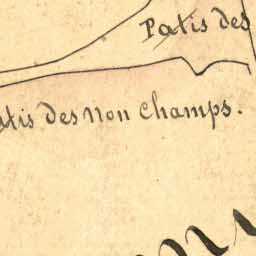 Patis des
atis des Non Champs.